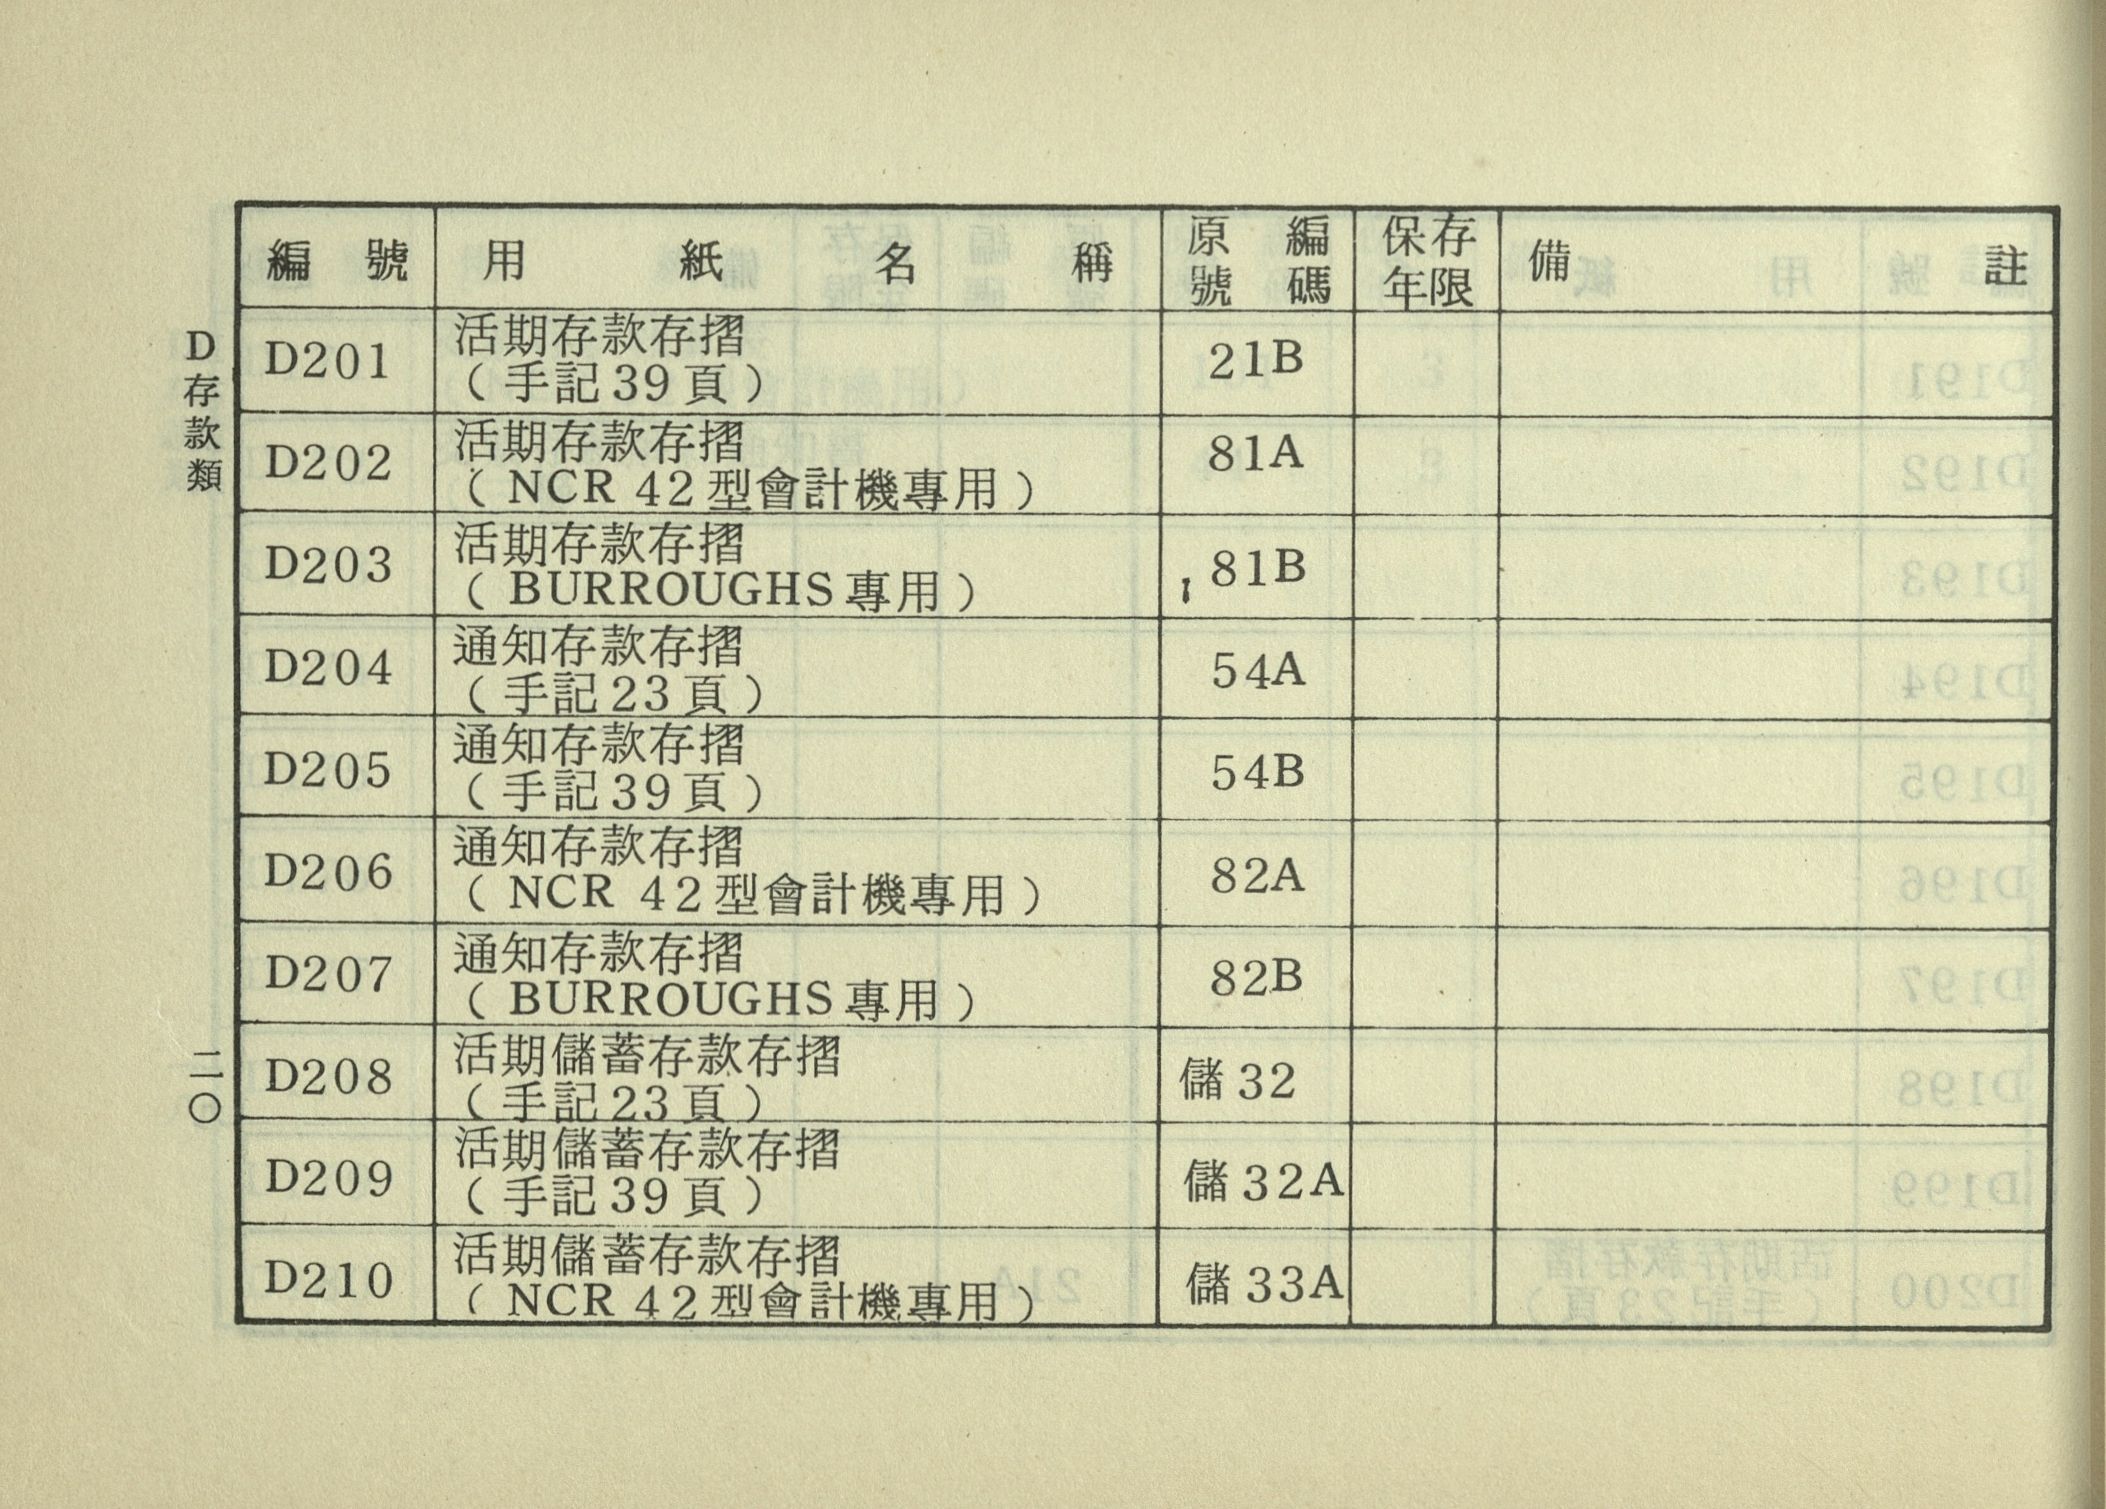 D存款類
二〇
編 號 用 紙 名 稱 原編號碼 保存年限 備 註
D201 活期存款存摺 21B
（手記39頁）
D202 活期存款存摺 81A
（NCR 42型會計機專用）
D203 活期存款存摺 81B
（BURROUGHS專用）
D204 通知存款存摺 54A
（手記23頁）
D205 通知存款存摺 54B
（手記39頁）
D206 通知存款存摺 82A
（NCR 42型會計機專用）
D207 通知存款存摺 82B
（BURROUGHS專用）
D208 活期儲蓄存款存摺 儲32
（手記23頁）
D209 活期儲蓄存款存摺 儲32A
（手記39頁）
D210 活期儲蓄存款存摺 儲33A
（NCR 42型會計機專用）